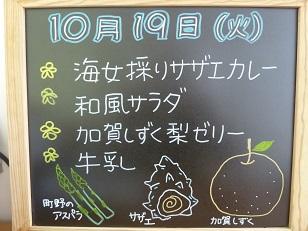 10月19日(火)
海女採りサザエカレー
和風サラダ
加賀しずく梨ゼリー
牛乳
町野の
アスパラ
サザエ
加賀しずく